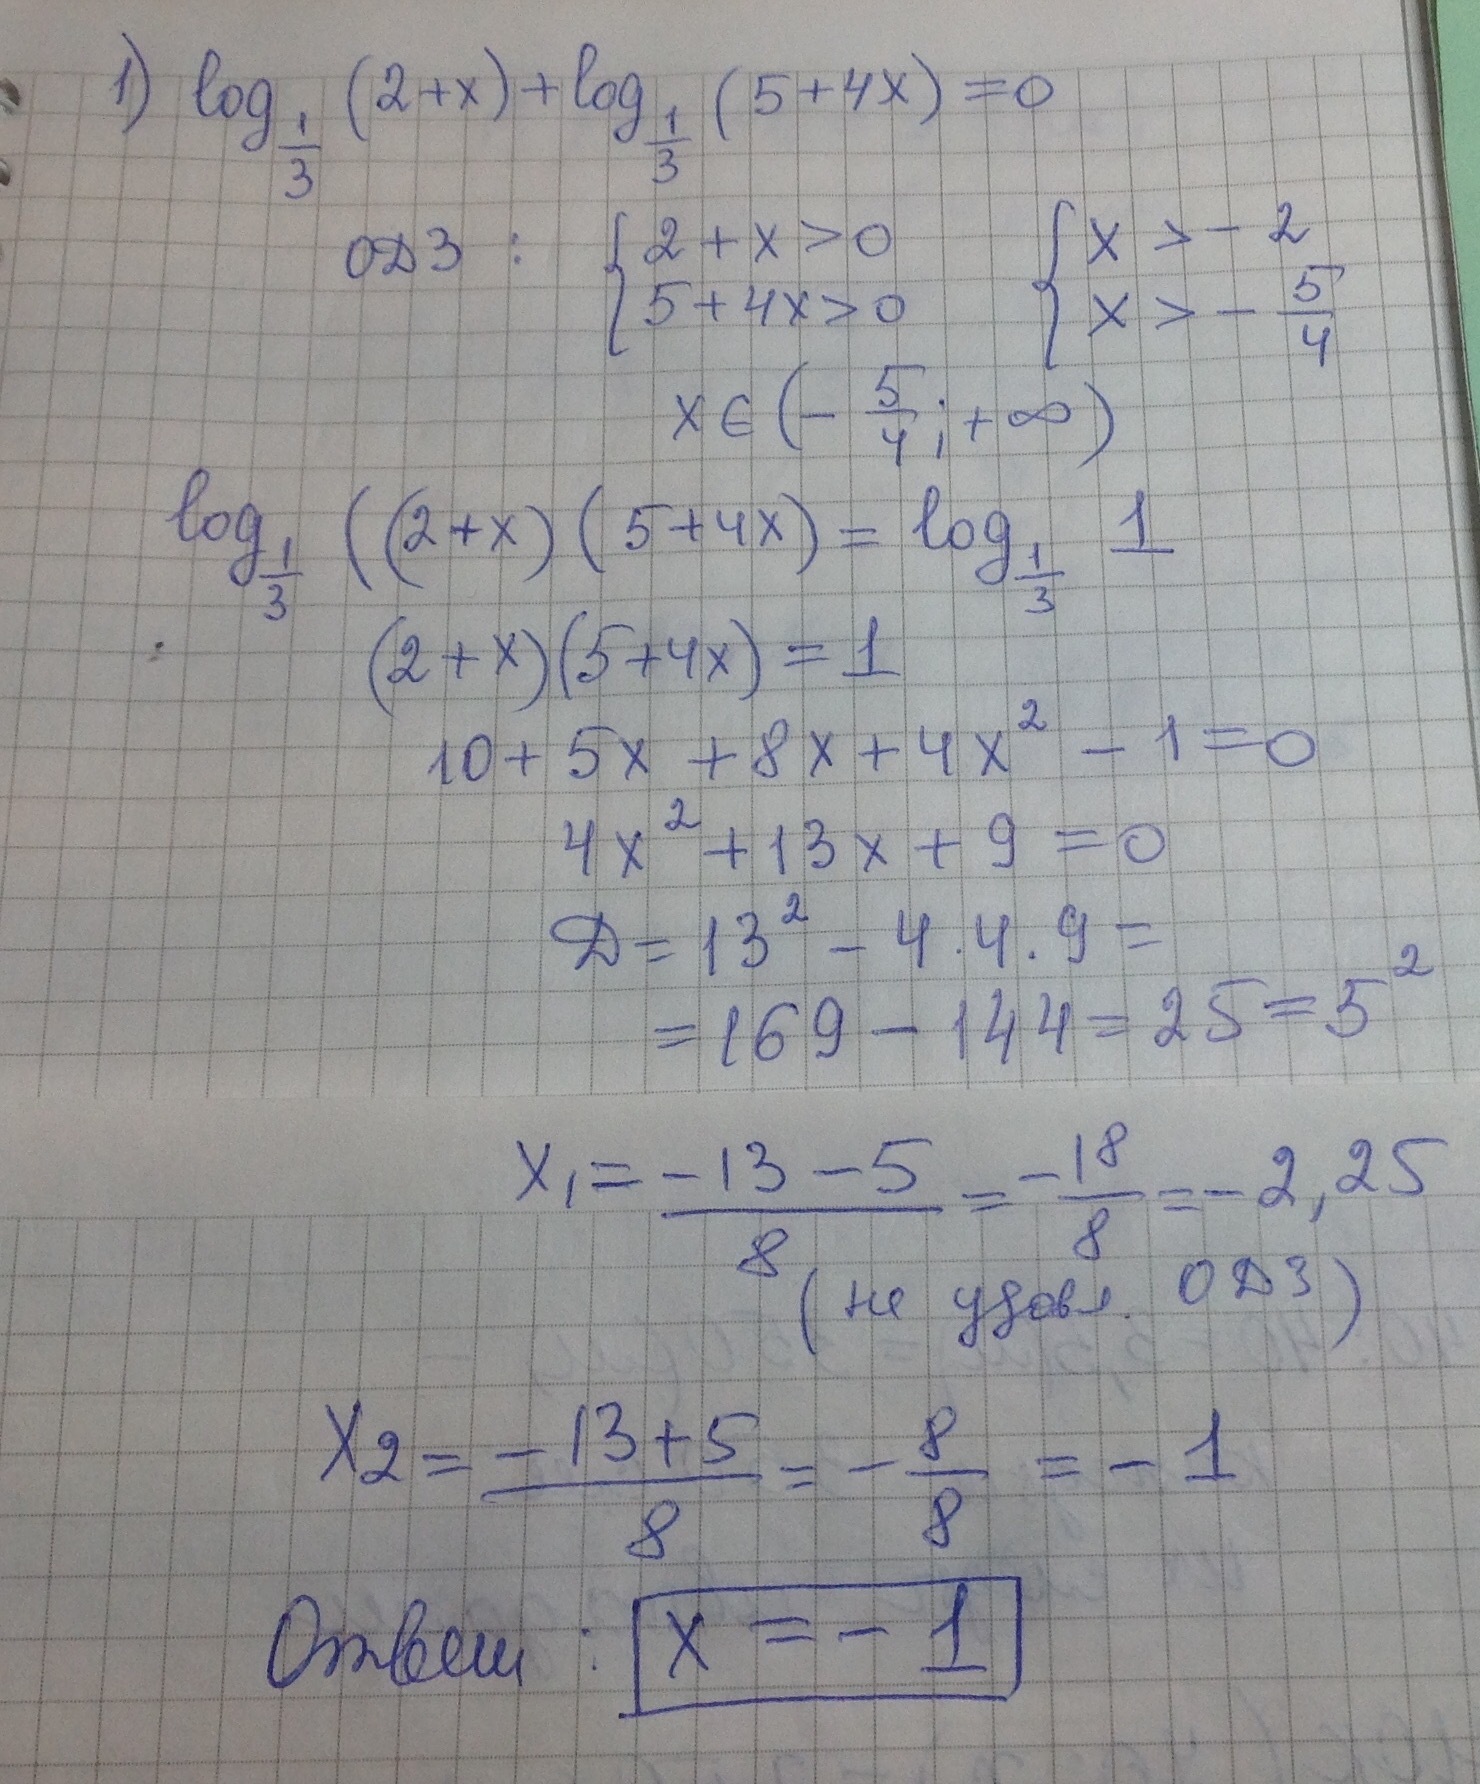 1) log_{1/3} (2+x) + log_{1/3} (5+4x) = 0
ОДЗ : { 2 + x > 0 { x > - 2
{ 5 + 4x > 0 { x > - 5/4
x ∈ (- 5/4 ; + ∞)
log_{1/3} ((2+x) (5+4x) = log_{1/3} 1
(2+x)(5+4x) = 1
10 + 5x + 8x + 4x² - 1 = 0
4x² + 13x + 9 = 0
Д = 13² - 4 · 4 · 9 =
= 169 - 144 = 25 = 5²
x₁ = (-13 - 5)/8 = -18/8 = - 2,25
(не удовл. ОДЗ)
x₂ = (-13 + 5)/8 = - 8/8 = - 1
Ответ : x = - 1